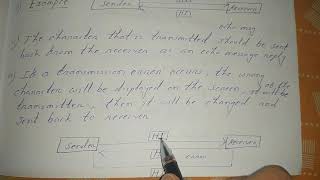 Example
Sender
HI
Receiver
echo msg
The character that is transmitted should be sent
back from the receiver as an echo message reply
If a transmission error occurs, the wrong
character will be displayed on the screen, of the
transmitter, then it will be changed and
sent back to receiver
HI
Sender
Receiver
error